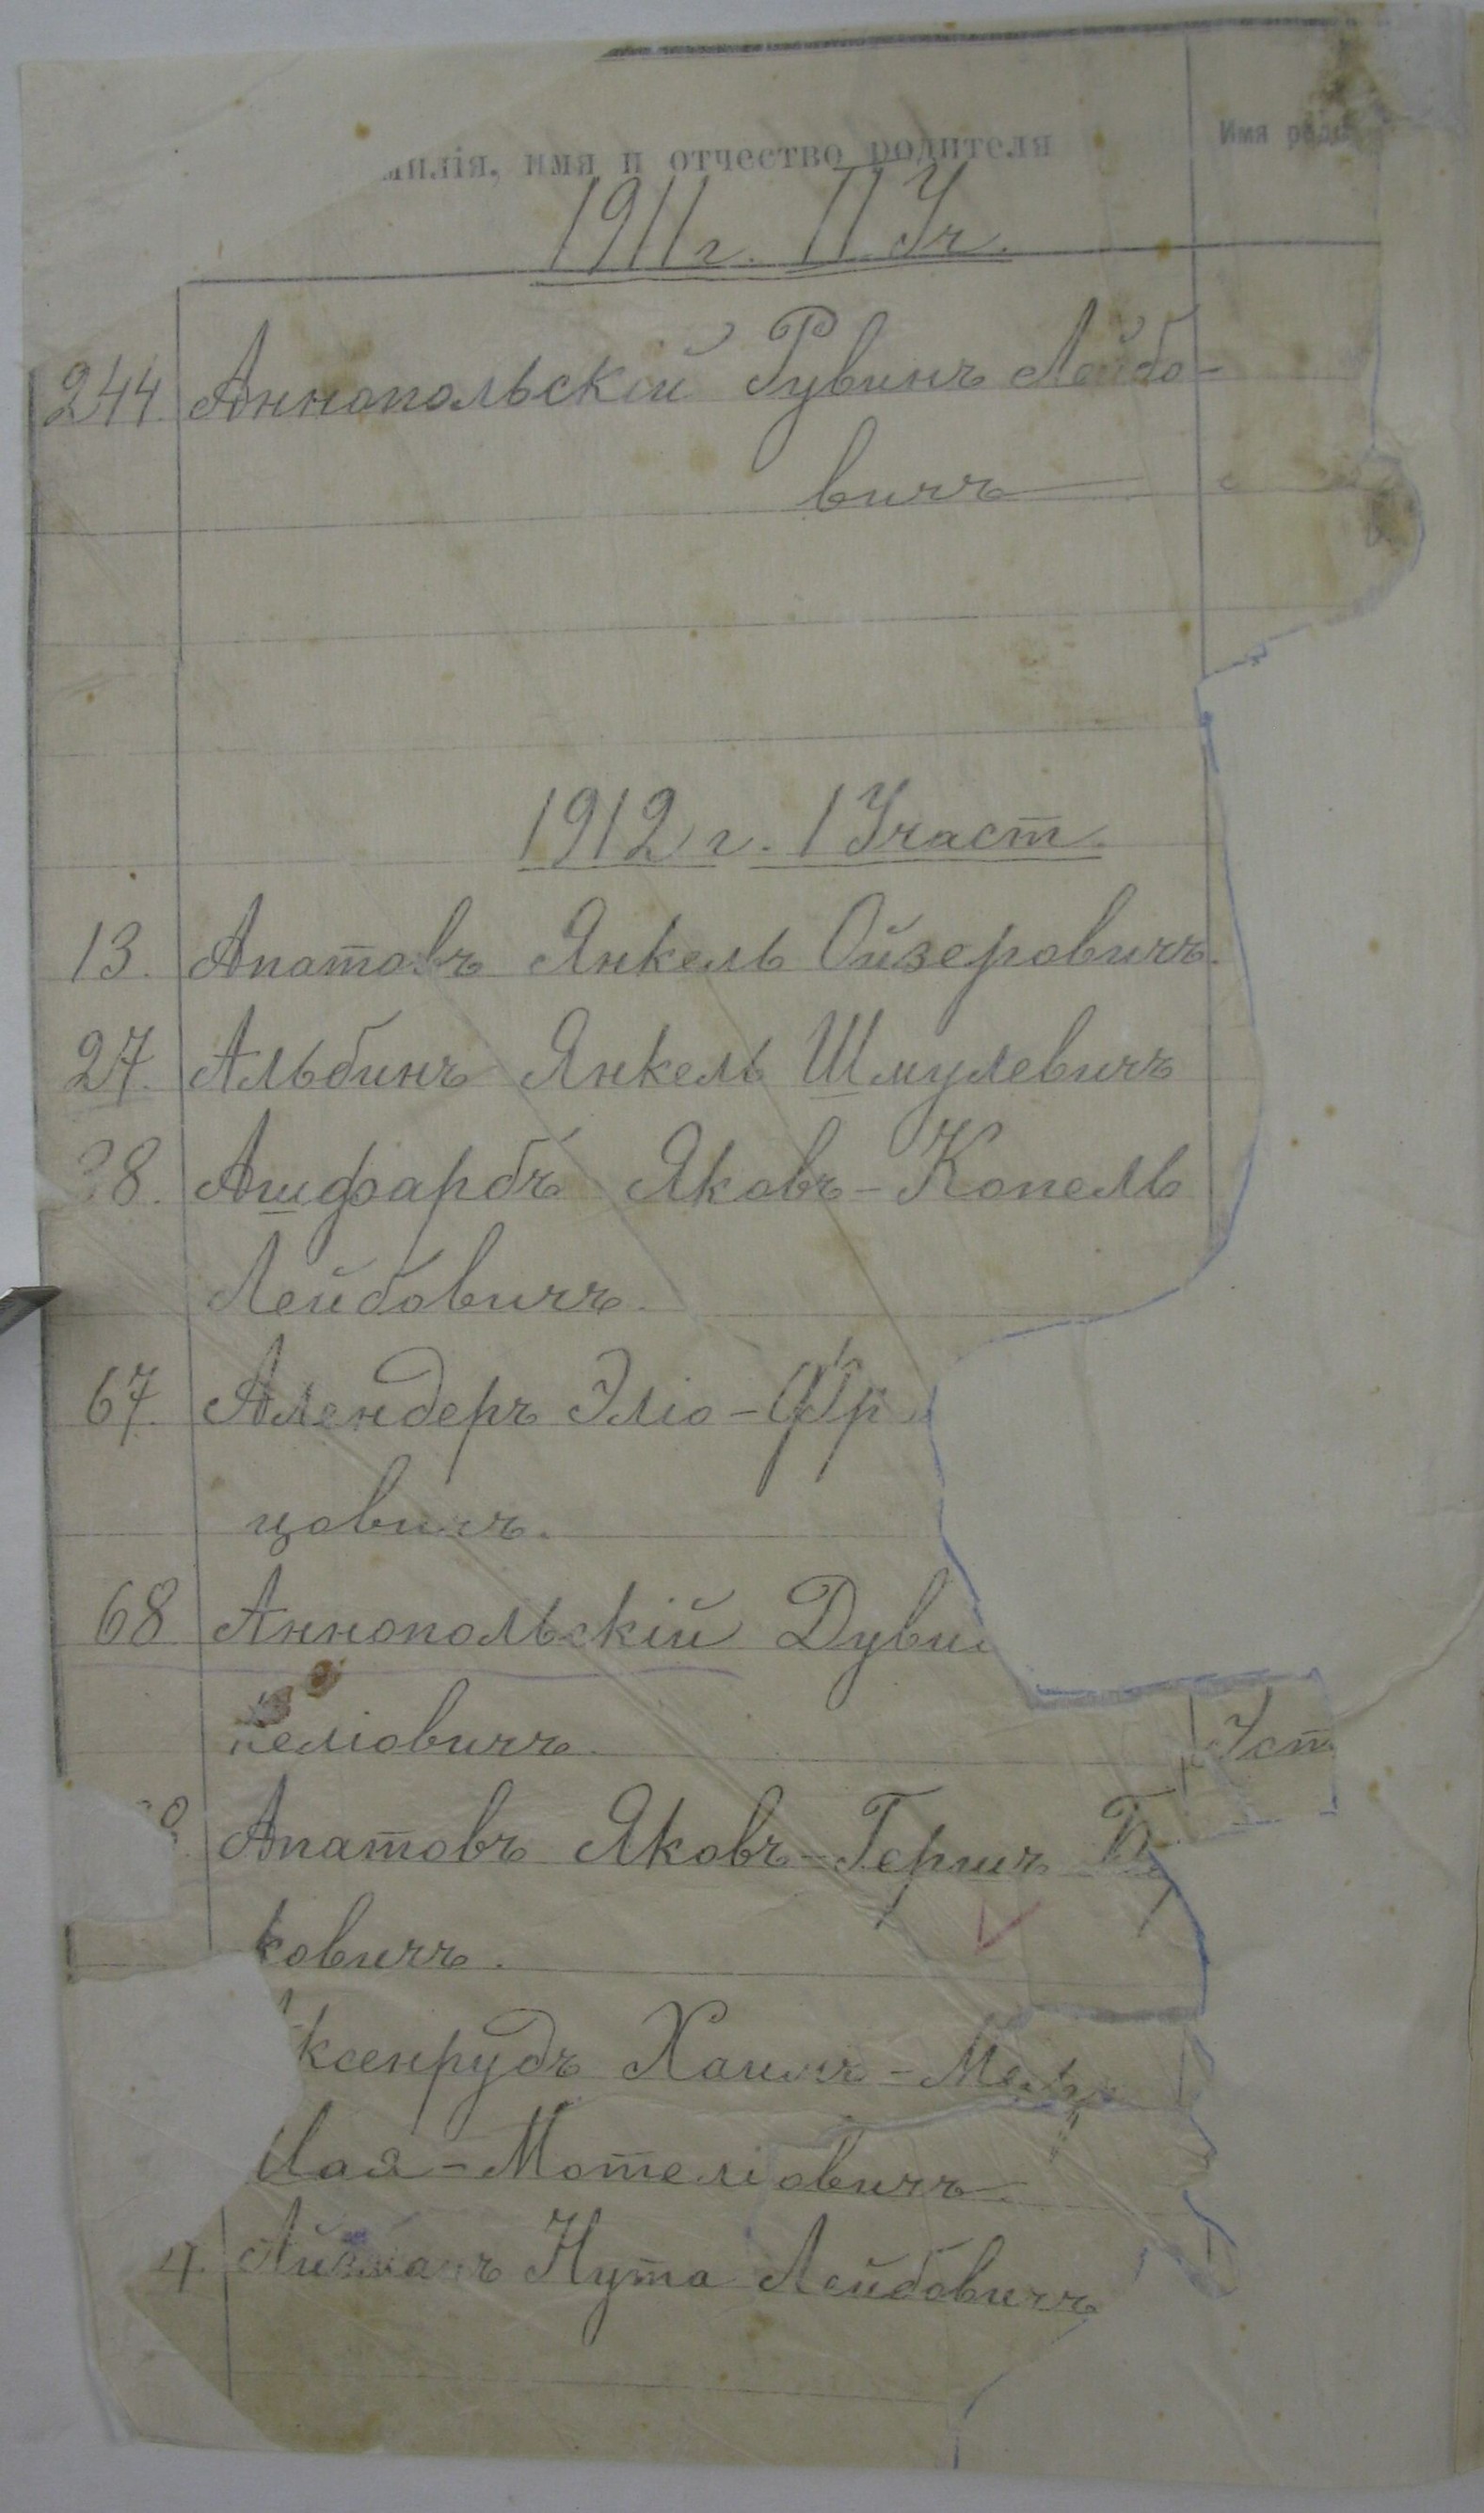 милія, имя и отчество родителя
Имя роди
1911 г. II Уч.
244. Аннопольскій Рувинъ Лейбо-
вичъ
1912 г. 1 Участ.
13. Апатовъ Янкель Ойзеровичъ.
27. Альбинъ Янкель Шмулевичъ
38. Ашфарбъ Яковъ-Копель
Лейбовичъ.
67. Алендеръ Эліо-Фр
цовичъ.
68 Аннопольскій Дуви
келіовичъ.
Уст
Апатовъ Яковъ-Гершъ Б
ковичъ.
ксенрудъ Хаимъ
Мотеліовичъ.
4. Айзманъ Нута Лейбовичъ